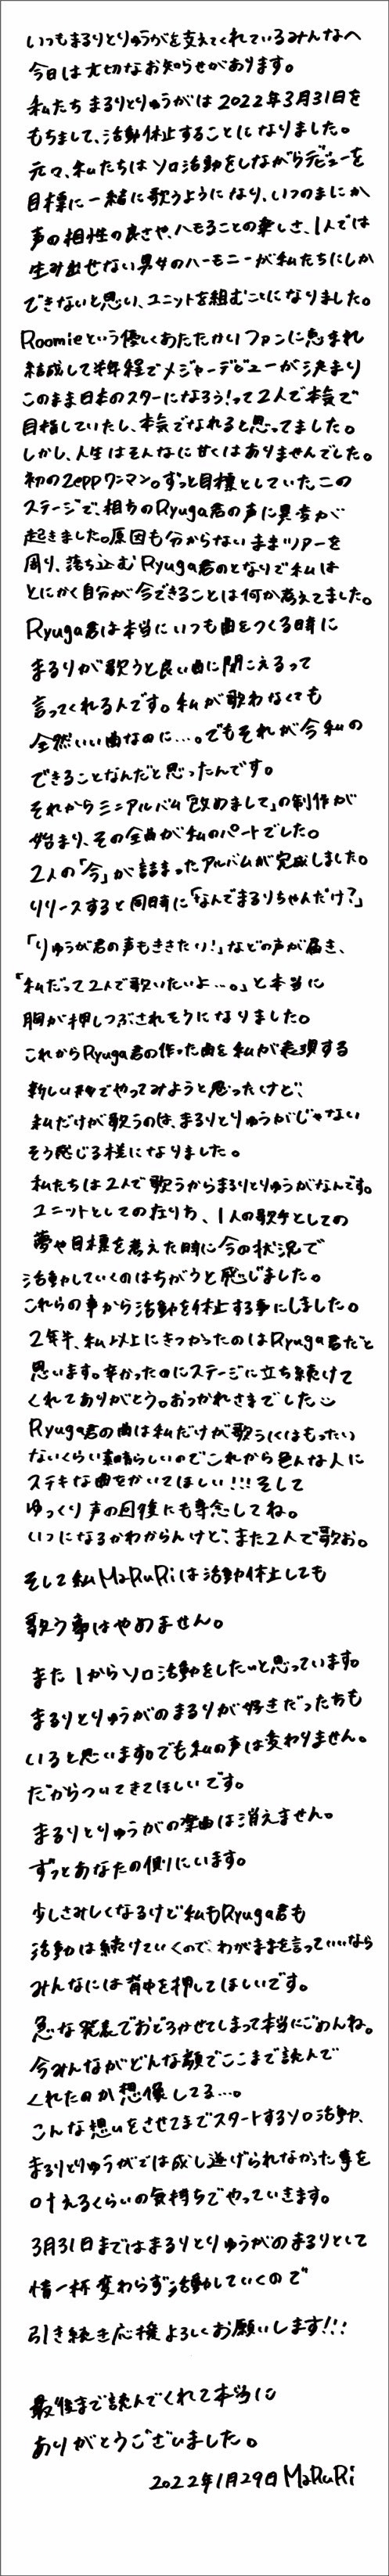 いつもまるりとりゅうがを支えてくれているみんなへ
今日は大切なお知らせがあります。
私たち まるりとりゅうがは 2022年3月31日を
もちまして、活動休止することになりました。
元々、私たちは ソロ活動をしながらデビューを
目標に一緒に歌うようになり、いつのまにか
声の相性の良さや、ハモることの楽しさ、1人では
生み出せない男女のハーモニーが私たちにしか
できないと思い、ユニットを組むことになりました。
Roomieという優しくあたたかいファンに恵まれ
結成して半年程でメジャーデビューが決まり
このまま日本のスターになろう!って2人で本気で
目指していたし、本気でなれると思ってました。
しかし、人生はそんなに甘くはありませんでした。
初のZeppワンマン。ずっと目標としていたこの
ステージで、相方のRyuga君の声に異変が
起きました。原因も分からないままツアーを
周り、落ち込むRyuga君のとなりで私は
とにかく自分が今できることは何か考えてました。
Ryuga君は本当にいつも曲をつくる時に
まるりが歌うと良い曲に聞こえるって
言ってくれる人です。私が歌わなくても
全然いい曲なのに…。でもそれが今私の
できることなんだと思ったんです。
それからミニアルバム「改めまして」の制作が
始まり、その全曲が私のパートでした。
2人の「今」が詰まったアルバムが完成しました。
リリースすると同時に「なんでまるりちゃんだけ?」
「りゅうが君の声もききたい!」などの声が届き、
「私だって2人で歌いたいよ…。」と本当に
胸が押しつぶされそうになりました。
これからRyuga君の作った曲を私が表現する
新しい形でやってみようと思ったけど、
私だけが歌うのは、まるりとりゅうがじゃない
そう感じる様になりました。
私たちは2人で歌うからまるりとりゅうがなんです。
ユニットとしての在り方、1人の歌手としての
夢や目標を考えた時に今の状況で
活動していくのはちがうと感じました。
これらの事から活動を休止する事にしました。
2年半、私以上にきつかったのはRyuga君だと
思います。辛かったのにステージに立ち続けて
くれてありがとう。おつかれさまでした
Ryuga君の曲は私だけが歌うにはもったい
ないくらい素晴らしいのでこれから色んな人に
ステキな曲をかいてほしい!!!そして
ゆっくり声の回復にも専念してね。
いつになるかわからんけど、また2人で歌お。
そして私MaRuRiは活動休止しても
歌う事はやめません。
また1からソロ活動をしたいと思っています。
まるりとりゅうがのまるりが好きだった方も
いると思います。でも私の声は変わりません。
だからついてきてほしいです。
まるりとりゅうがの楽曲は消えません。
ずっとあなたの側にいます。
少しさみしくなるけど私もRyuga君も
活動は続けていくので、わがままを言っていいなら
みんなには背中を押してほしいです。
急な発表でおどろかせてしまって本当にごめんね。
今みんながどんな顔でここまで読んで
くれたのか想像してる…。
こんな想いをさせてまでスタートするソロ活動、
まるりとりゅうがでは成し遂げられなかった事を
叶えるくらいの気持ちでやっていきます。
3月31日まではまるりとりゅうがのまるりとして
精一杯変わらず活動していくので
引き続き応援よろしくお願いします!!!
最後まで読んでくれて本当に
ありがとうございました。
2022年1月29日 MaRuRi